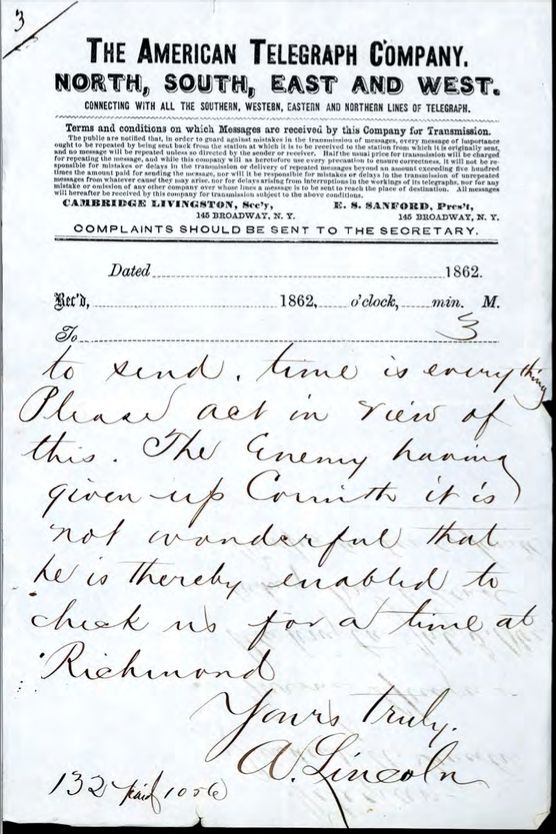 3
THE AMERICAN TELEGRAPH COMPANY.
NORTH, SOUTH, EAST AND WEST.
CONNECTING WITH ALL THE SOUTHERN, WESTERN, EASTERN AND NORTHERN LINES OF TELEGRAPH.
Terms and conditions on which Messages are received by this Company for Transmission.
The public are notified that, in order to guard against mistakes in the transmission of messages, every message of importance
ought to be repeated by being sent back from the station at which it is to be received to the station from which it is originally sent,
and no message will be repeated unless so directed by the sender or receiver. Half the usual price for transmission will be charged
for repeating the message, and while this company will as heretofore use every precaution to ensure correctness, it will not be re-
sponsible for mistakes or delays in the transmission or delivery of repeated messages beyond an amount exceeding five hundred
times the amount paid for sending the message, nor will it be responsible for mistakes or delays in the transmission of unrepeated
messages from whatever cause they may arise, nor for delays arising from interruptions in the workings of its telegraphs, nor for any
mistake or omission of any other company over whose lines a message is to be sent to reach the place of destination. All messages
will hereafter be received by this company for transmission subject to the above conditions.
CAMBRIDGE LIVINGSTON, Sec'y, E. S. SANFORD, Pres't,
145 BROADWAY, N. Y. 145 BROADWAY, N. Y.
COMPLAINTS SHOULD BE SENT TO THE SECRETARY.
Dated 1862.
Rec'd, 1862, o'clock, min. M.
To 3
to send. time is everything
Please act in view of
this. The Enemy having
given up Corinth it is
not wonderful that
he is thereby enabled to
check us for a time at
Richmond
Yours truly.
A. Lincoln
132 paid